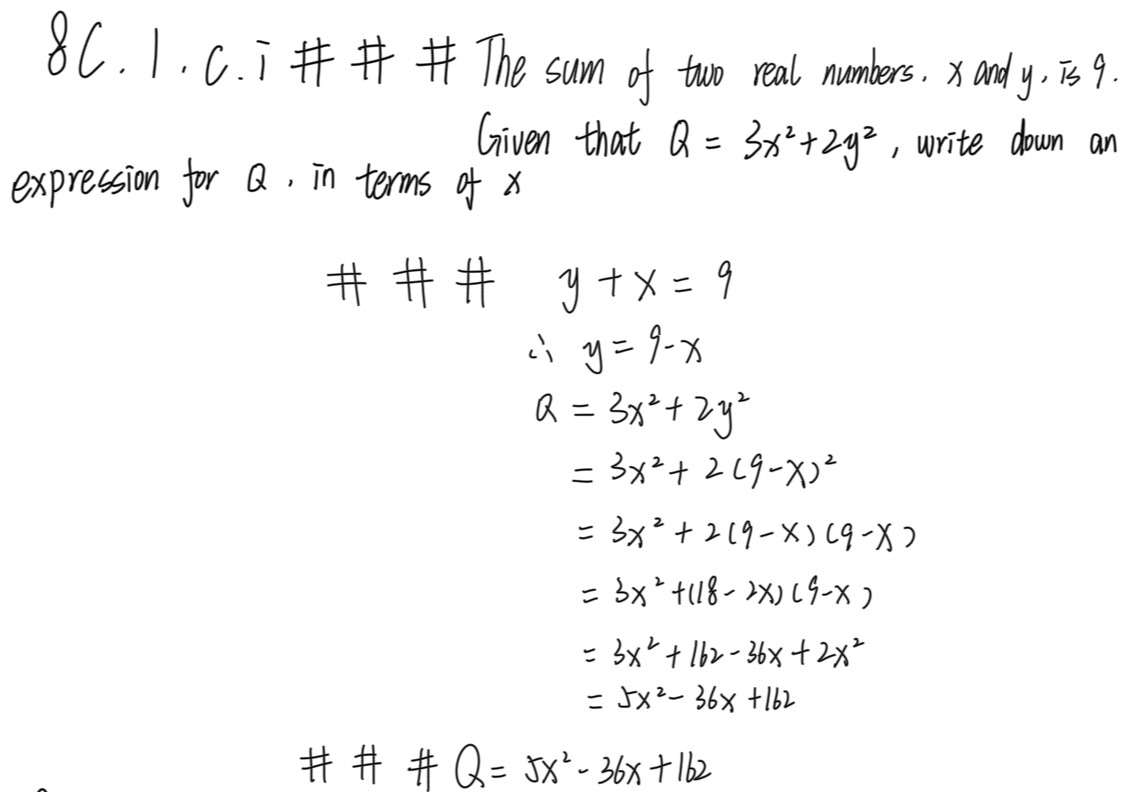 8C.1.c.i # # # The sum of two real numbers. x and y. is 9.
Given that Q = 3x²+2y², write down an
expression for Q, in terms of x
# # # y + x = 9
∴ y = 9-x
Q = 3x²+2y²
= 3x²+ 2(9-x)²
= 3x²+ 2(9-x)(9-x)
= 3x²+(18-2x)(9-x)
= 3x²+162-36x+2x²
= 5x²-36x+162
# # # Q = 5x²-36x+162